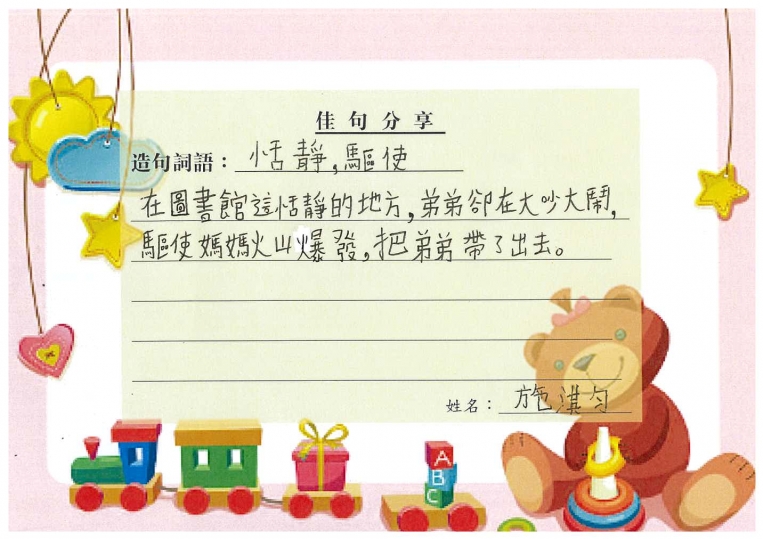 佳句分享
造句詞語：恬靜,驅使
在圖書館這恬靜的地方,弟弟卻在大吵大鬧,
驅使媽媽火山爆發,把弟弟帶了出去。
姓名：施淇勻
A
B
C